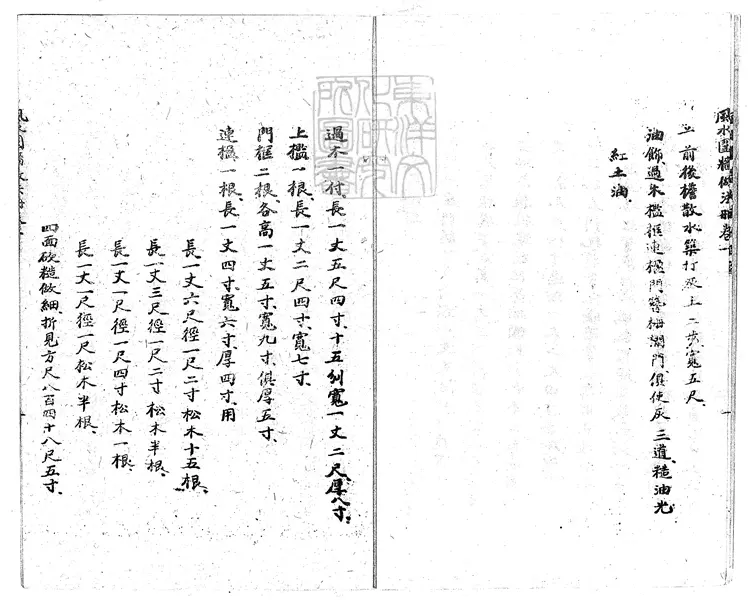 風水圍牆做法冊卷一
前後檐散水築打灰土二步寬五尺、
油飾過木檻框連楹門簪柵欄門俱使灰三道、糙油光
紅土油、
過木一付長一丈五尺四寸、十五別寬一丈二尺、厚八寸、
上檻一根、長一丈二尺四寸、寬七寸、
門框二根、各高一丈五寸、寬九寸、俱厚五寸、
連楹一根、長一丈四寸、寬六寸、厚四寸、用
長一丈六尺徑一尺二寸松木十五根、
長一丈三尺徑一尺二寸松木半根、
長一丈一尺徑一尺四寸松木一根、
長一丈一尺徑一尺松木半根、
四面砍糙做細、折見方尺八百四十八尺五寸、